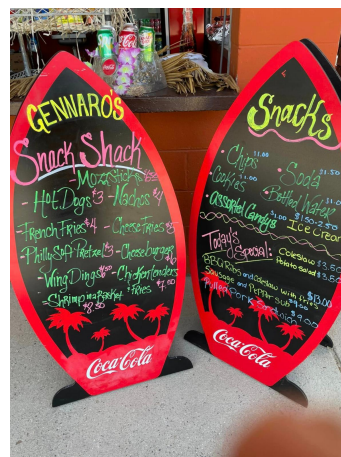 GENNARO'S
Snack Shack
- Mozz Sticks
- Hot Dogs $3 - Nachos $4
- French Fries $4 - Cheese Fries $5
- Philly Soft Pretzel $3 - Cheeseburger $6
- Wing Dings - Chicken Tenders
Fries $7.00
- Shrimp in a Basket
$8.50
Coca-Cola
Snacks
• Chips $1.00
• Soda $1.50
Cookies $1.00
• Bottled Water $1.00
• Assorted Candys $1.50-2.50
Ice Cream
Today's
Special:
Coleslaw $3.50
Potato Salad $3.50
BBQ Ribs and Coleslaw with Fries $13.00
Sausage and Pepper Sub $9.50
Pulled Pork Sandwich $9.00
Coca-Cola